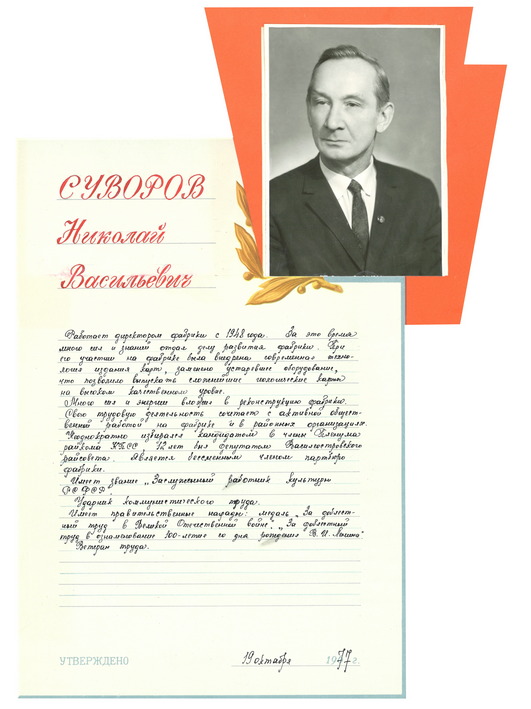 СУВОРОВ
Николай
Васильевич
Работает директором фабрики с 1948 года. За это время
много сил и знаний отдал делу развития фабрики. При
его участии на фабрике была внедрена современная техно-
логия издания карт, заменено устаревшее оборудование,
что позволило выпускать сложнейшие геологические карты
на высоком качественном уровне.
Много сил и энергии вложил в реконструкцию фабрики.
Свою трудовую деятельность сочетает с активной общест-
венной работой на фабрике и в районных организациях.
Неоднократно избирался кандидатом в члены Пленума
райкома КПСС 12 лет был депутатом Василеостровского
райсовета. Является бессменным членом партбюро
фабрики.
Имеет звание „Заслуженный работник культуры
РСФСР"
Ударник коммунистического труда.
Имеет правительственные награды: медаль „За доблест-
ный труд в Великой Отечественной войне". „За доблестный
труд в ознаменование 100-летие со дня рождения В. И. Ленина"
„Ветеран труда.
УТВЕРЖДЕНО 19 октября 1977 г.